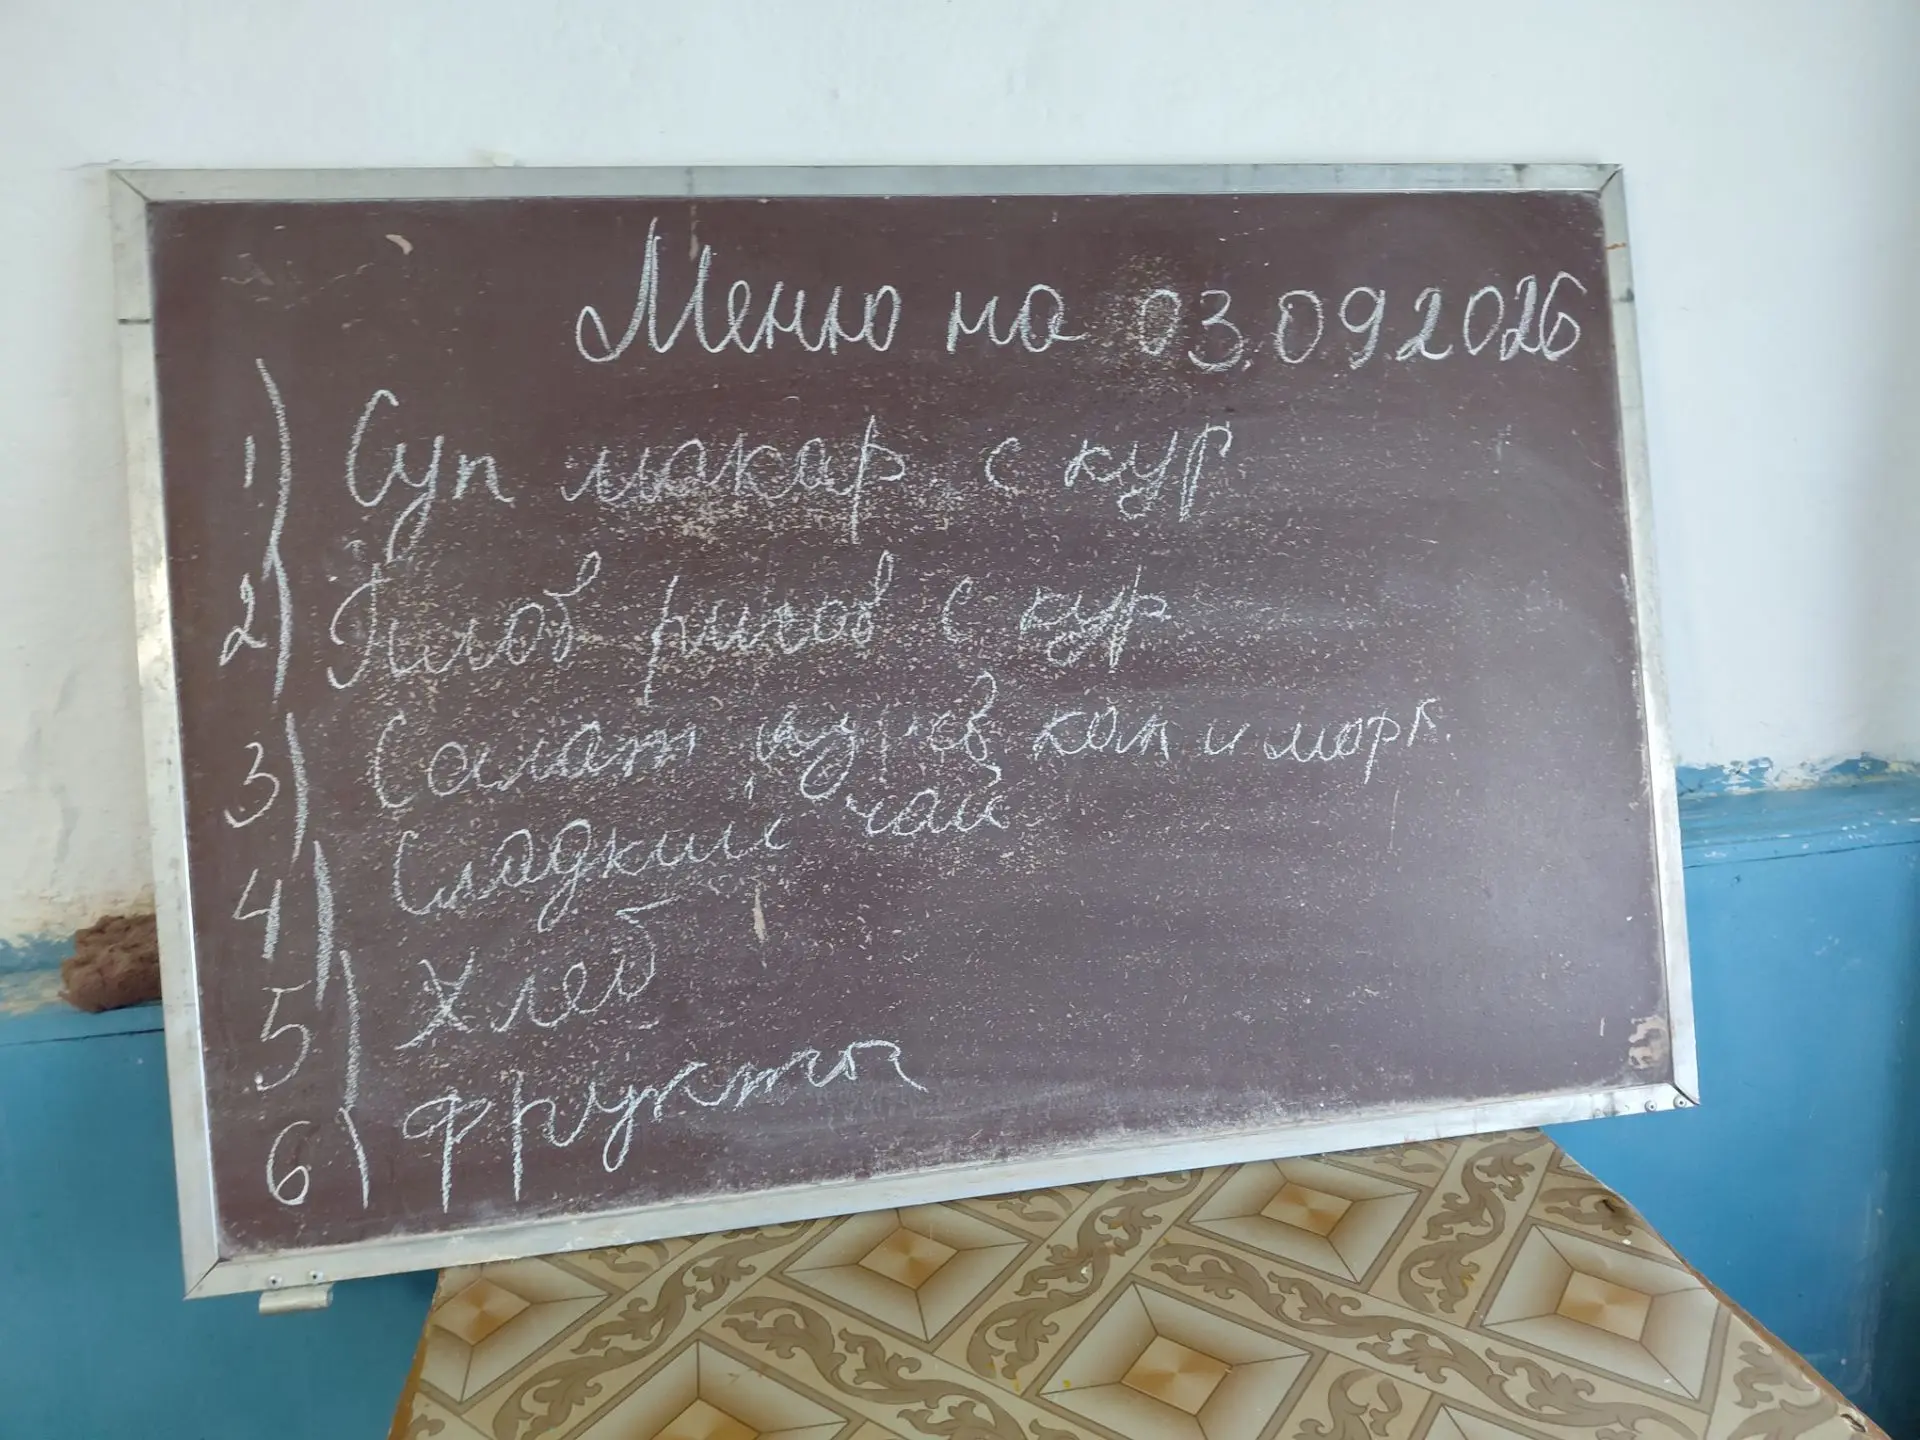 Меню на 03.09.2026
1) Суп макар. с кур
2) Плов рисов с кур
3) Салат из св кап и морк.
4) Сладкий чай
5) Хлеб
6) фрукты